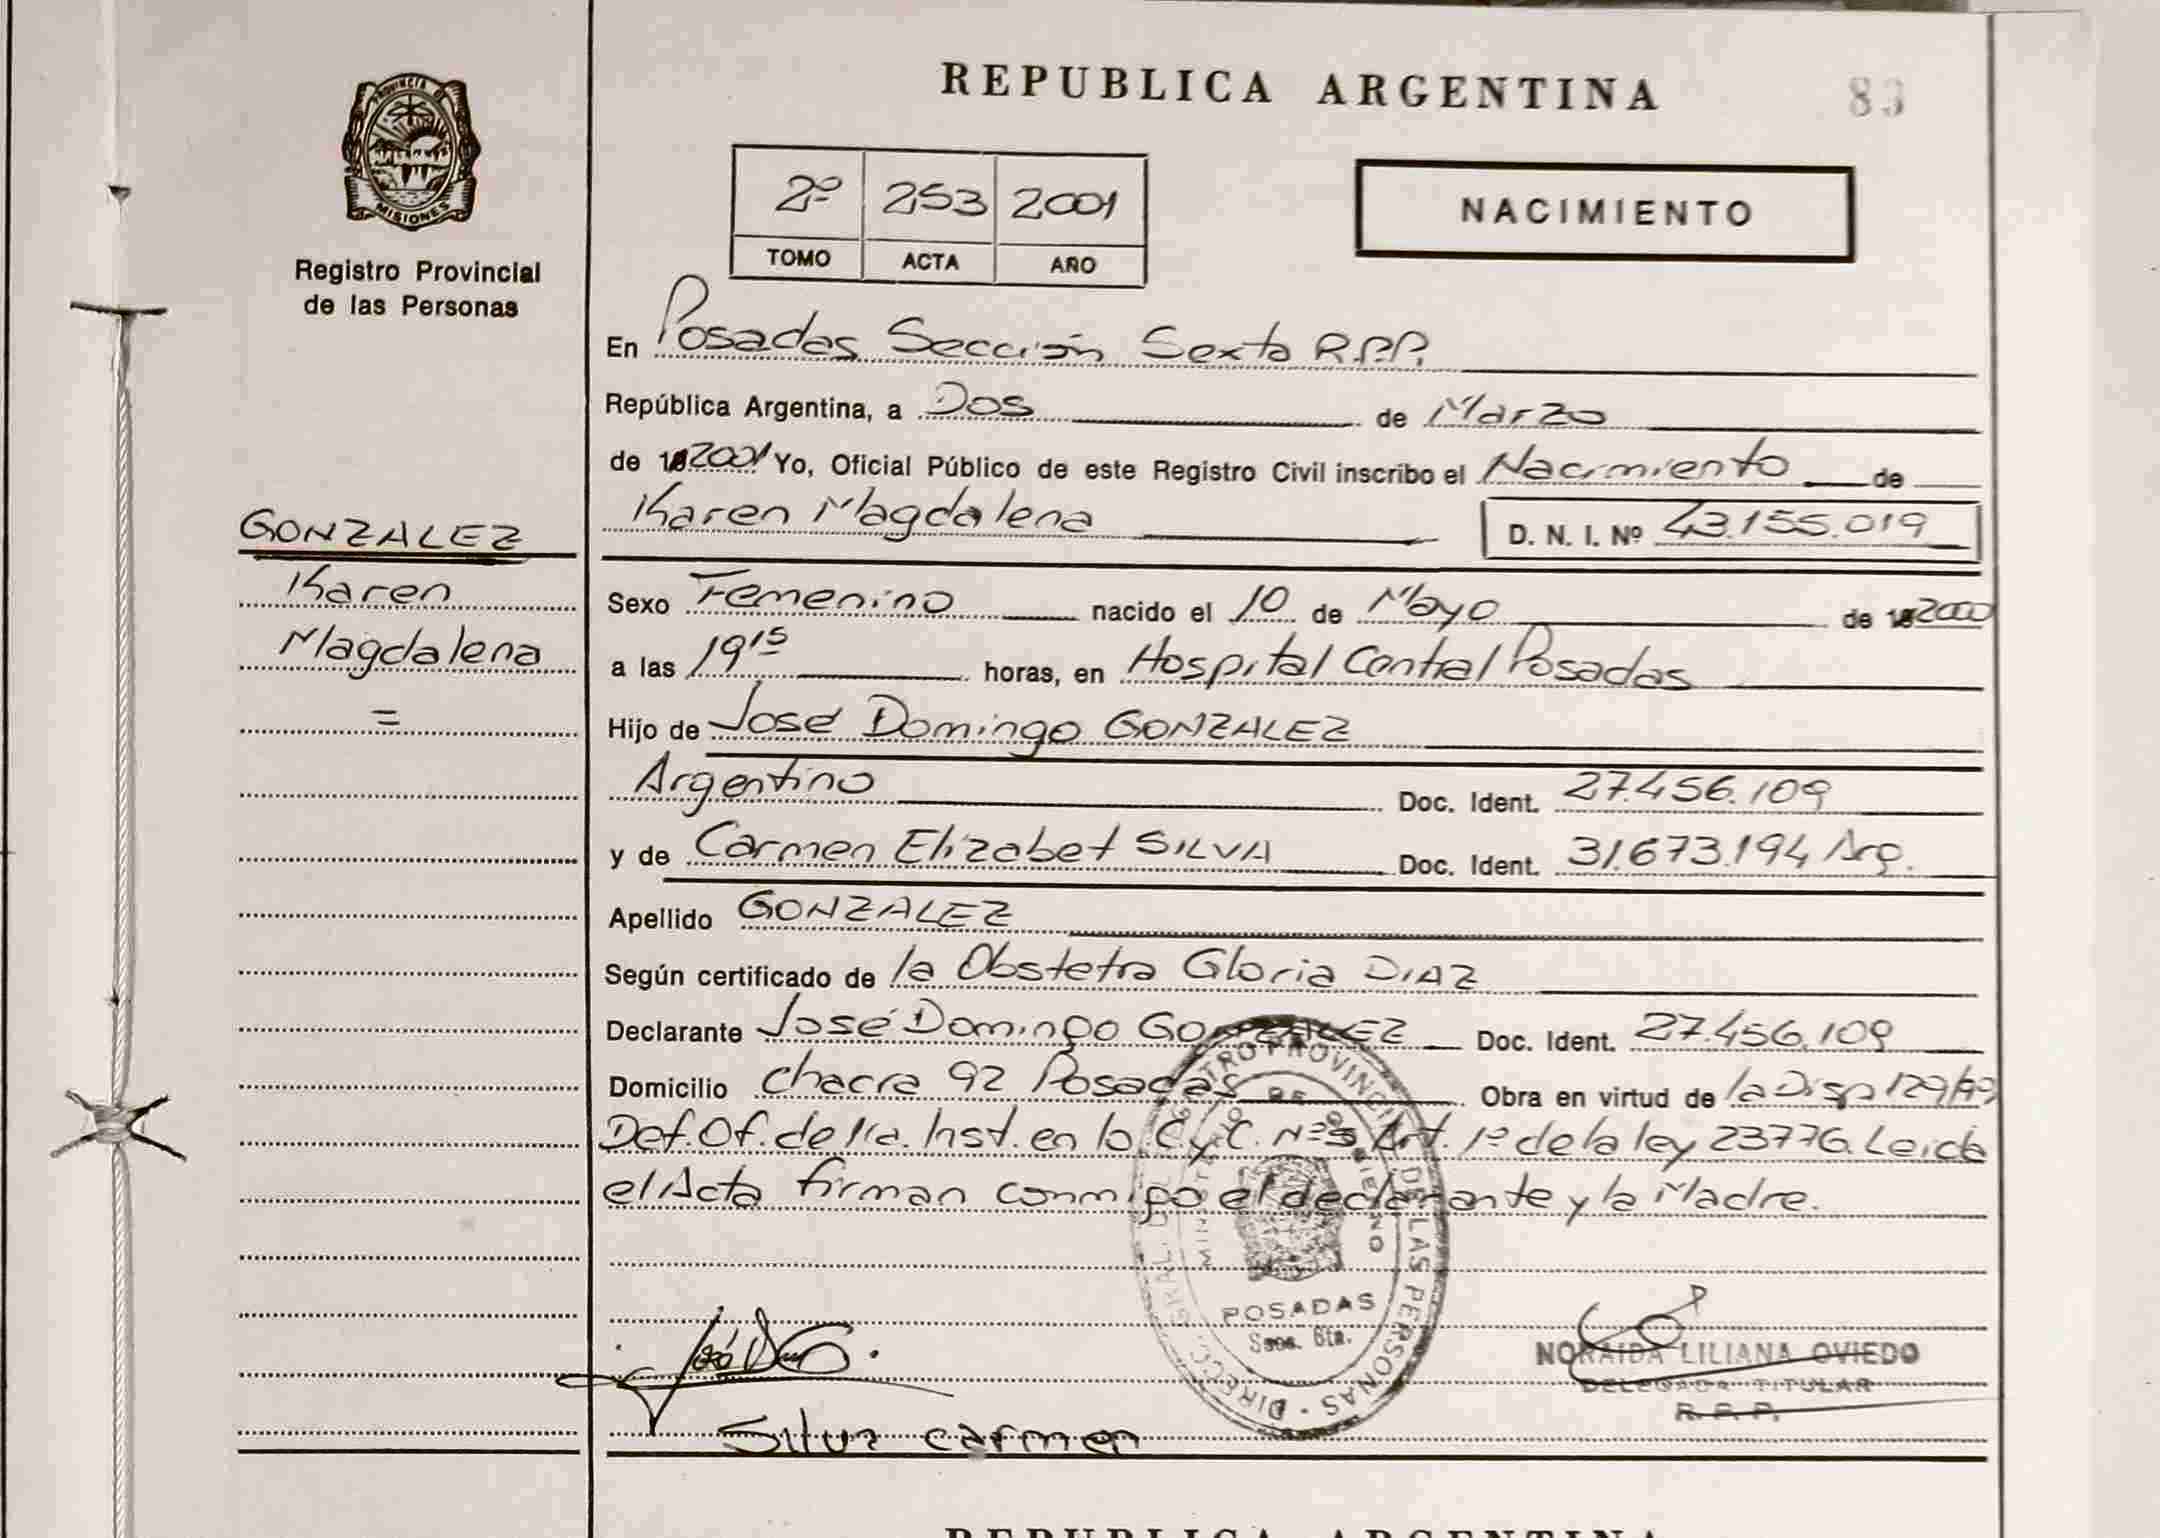 REPUBLICA ARGENTINA
83
PROVINCIA DE
MISIONES
Registro Provincial
de las Personas
2º 253 2001
TOMO ACTA AÑO
NACIMIENTO
En Posadas Sección Sexta R.P.P.
República Argentina, a Dos de Marzo
de 2001 Yo, Oficial Público de este Registro Civil inscribo el Nacimiento de
Karen Magdalena D. N. I. Nº 43.155.019
GONZALEZ
Karen
Magdalena
=
Sexo Femenino nacido el 10 de Mayo de 2000
a las 19 15 horas, en Hospital Central Posadas
Hijo de José Domingo GONZALEZ
Argentino Doc. Ident. 27.456.109
y de Carmen Elizabet SILVA Doc. Ident. 31.673.194 Arg.
Apellido GONZALEZ
Según certificado de la Obstetra Gloria DIAZ
Declarante José Domingo GONZALEZ Doc. Ident. 27.456.109
Domicilio chacra 92 Posadas Obra en virtud de la Disp 129/99
Def. Of. de 1ra. Inst. en lo C y C. Nº 3 Art. 1º de la ley 23776. Leida
el Acta firman conmigo el declarante y la Madre.
DIRECC. GRAL. DEL REGISTRO PROVINCIAL DE LAS PERSONAS
MINISTERIO DE GOBIERNO
POSADAS
Secc. 6ta.
José
Silva Carmen
NORAIDA LILIANA OVIEDO
DELEGADA TITULAR
R. P. P.
REPUBLICA ARGENTINA